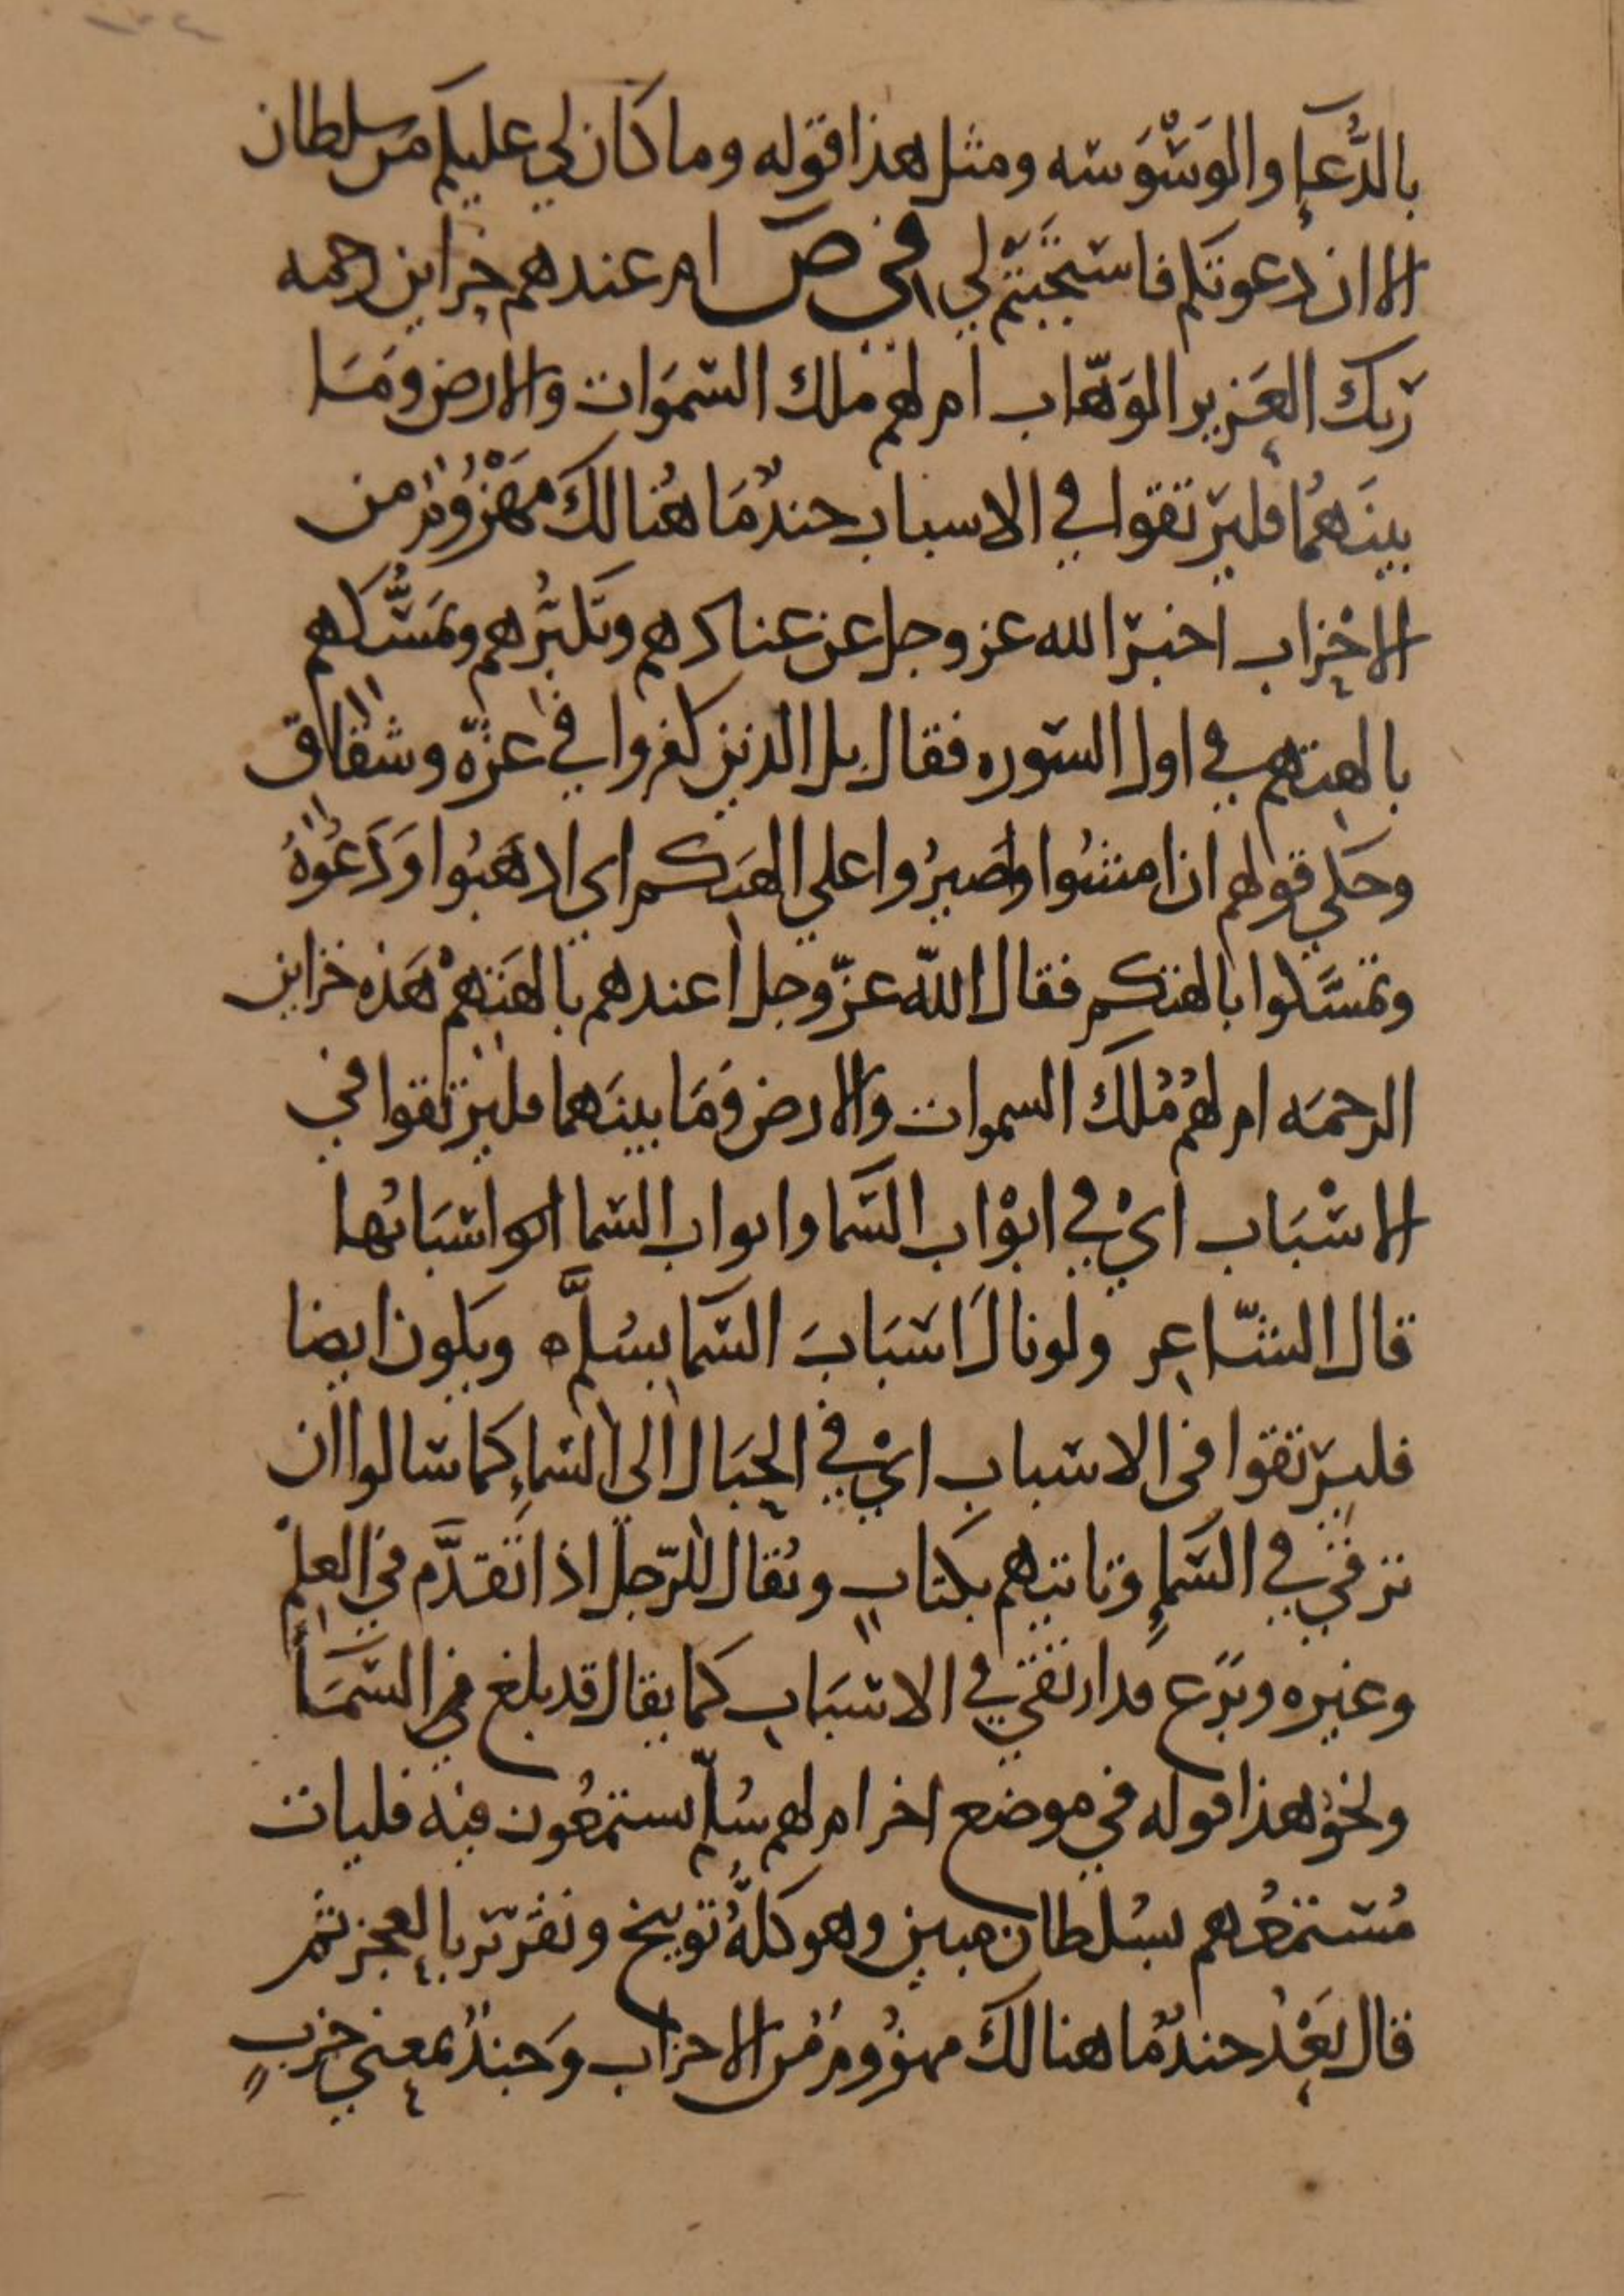 بالدُّعآءِ والوَسْوَسَه ومثل هذا قوله وما كان لي عليكم مّن سلطان
الا ان دعوتكم فاستَجَبْتُم لي في ص ام عندهم خزاين رحمه
ربك العَزيز الوَهّاب ام لهم ملك السّمَوات والارض ومَا
بينَهمُا فليرتقوا في الاسباب جندٌ مَا هُنالكَ مَهْزُومٌ من
الاحْزاب اخبر الله عز وجل عن عنادهم وتكبُّرهم وتمَسُّكهم
بالهتهم في اول السّوره فقال بل الذين كفروا في عزّه وشقاق
وحكي قولهم ان امشوا واصبرُوا علي الهتكم اي اذهَبُوا ودَعُوهُ
وتمسَّكوا بالهتكم فقال اللّه عزّ وجل أعندهم بالهَتهمْ هَذه خزاين
الرحمَه ام لهُم مُلكَ السموات والارض ومَا بينَهما فليرتقوا في
الاسْبَاب ايْ في ابوْاب السّما وابواب السّما اسبَابُها
قال الشّاعِر ولو نالَ اسَبَابَ السّما بسُلَّم ويكون ايضا
فليرَتقوا في الاسباب ايْ في الحِبَال الى السّماءِ كما سالوا ان
ترقي في السّماءِ وتاتيهم بكتابٍ ويُقال للرّجل اذا تَقدَّم في العِلْم
وغيره وبَرَع قد ارتقي في الاسْبَاب كما يقال قد بلغ في السَّمَاء
ونحوُ هذا قوله في موضع اخر ام لهم سُلّم يستمعُون فيه فليات
مُستمعُهم بسُلطان مبين وهو كلهُ توبيخ وتقرير بالعجز ثم
قال بَعْدُ جندٌ ما هنالكَ مهزُومٌ مّن الاحزاب وَجندٌ بمعني حزبٍ